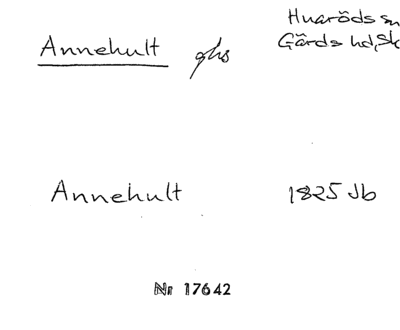 Annehult ghs Huaröds sn
Gärds hd, Sk
Annehult 1825 Jb
Nr 17642